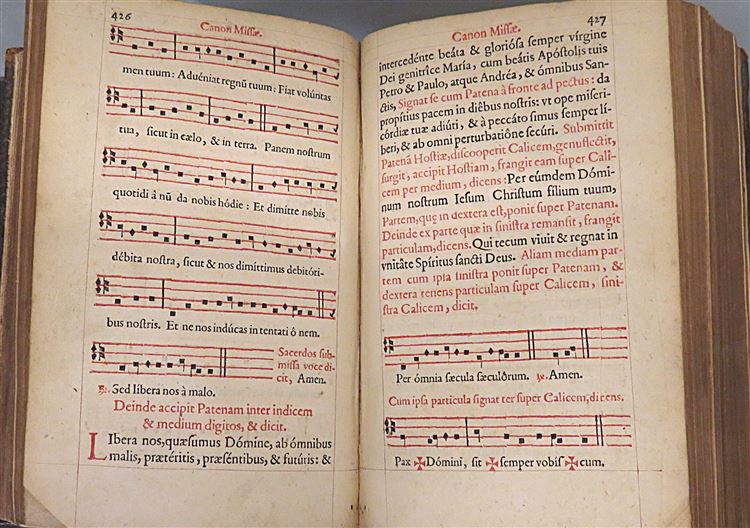 426
Canon Missæ.
men tuum: Advéniat regnũ tuum: Fiat volúntas
tua, sicut in cælo, & in terra. Panem nostrum
quotidi á nũ da nobis hódie: Et dimítte nobis
débita nostra, sicut & nos dimíttimus debitóri-
bus nostris. Et ne nos indúcas in tentati ô nem.
Sacerdos sub-
missa voce di-
cit, Amen.
℟. Sed líbera nos à malo.
Deinde accipit Patenam inter indicem
& medium digitos, & dicit.
Líbera nos, quæsumus Dómine, ab ómnibus
malis, prætéritis, præséntibus, & futúris: &
Canon Missæ.
427
intercedénte beáta & gloriósa semper vírgine
Dei genitríce María, cum beátis Apóstolis tuis
Petro & Paulo, atque Andréa, & ómnibus San-
ctis, Signat se cum Patena à fronte ad pectus: da
propítius pacem in diêbus nostris: vt ope miseri-
córdiæ tuæ adiúti, & à peccáto simus semper lí-
beri, & ab omni perturbatiône secúri. Submittit
Patenã Hostiæ, discooperit Calicem, genuflectit,
surgit, accipit Hostiam, frangit eam super Cali-
cem per medium, dicens: Per eúmdem Dómi-
num nostrum Iesum Christum fílium tuum,
Partem, que in dextera est, ponit super Patenam.
Deinde ex parte quæ in sinistra remansit, frangit
particulam, dicens. Qui tecum viuit & regnat in
vnitâte Spíritus sancti Deus. Aliam mediam par-
tem cum ipsa sinistra ponit super Patenam, &
dextera tenens particulam super Calicem, sini-
stra Calicem, dicit.
Per ómnia sæcula sæculôrum. ℟. Amen.
Cum ipsa particula signat ter super Calicem, dicens.
Pax ✠ Dómini, sit ✠ semper vobis ✠ cum.